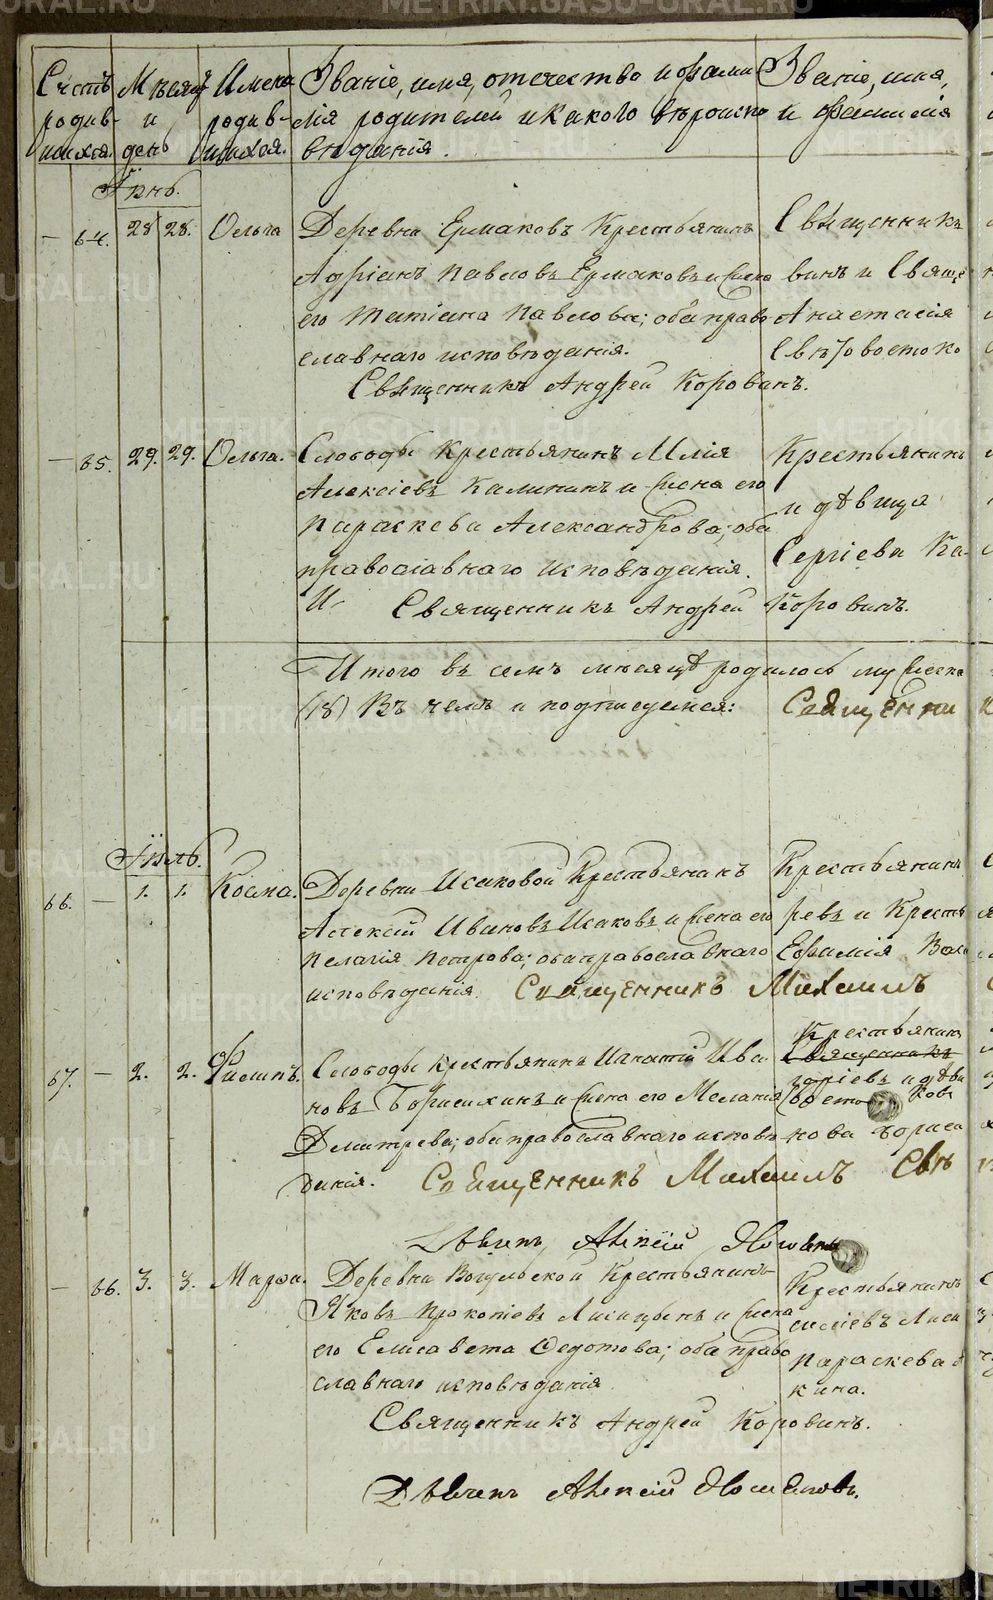 Счетъ родив- шихся.
Мѣсяцъ и день
Имена родив- шихся.
Званіе, имя, отечество и фами-
лія родителей и какого вѣроиспо
вѣданія.
Званіе, имя,
и фамилія
Іюнь.
64. 28 28. Ольга
Деревни Ермаковъ Крестьянинъ
Адріанъ Павловъ Ермаковъ и жена
его Татіана Павлова; оба право
славнаго исповѣданія.
Священникъ Андрей Корованъ.
Священникъ
винъ и Свящ
Анастасія
Свѣтовостоко
65. 29. 29. Ольга.
Слободы Крестьянинъ Илія
Алексіевъ Калининъ и жена его
Параскева Александрова; оба
православнаго исповѣданія.
Священникъ Андрей Коровинъ.
Крестьянинъ
и дѣвица
Сергіева Ка-
Итого въ семъ мѣсяцѣ родилось му жеска
(18) Въ чемъ и подписуемся: Священни
Іюль.
66. 1. 1. Косма.
Деревни Исаковой Крестьянинъ
Алексій Ивановъ Исаковъ и жена его
Пелагія Петрова; оба православнаго
исповѣданія. Священникъ Михаилъ
Крестьянинъ
ревъ и Кресть
Евфимія
67. 2. 2. Филипъ.
Слободы Крестьянинъ Игнатій Ива
новъ Борисихинъ и жена его Меланія
Дмитрева; оба православнаго исповѣ
данія. Священникъ Михаилъ Свѣ
Крестьянинъ
Священникъ
горіевъ и дѣви
нова Бориси
Дьячекъ Алексій
66. 3. 3. Марѳа.
Деревни Вогульской Крестьянинъ
Яковъ Прокопіевъ Лисицынъ и жена
его Елисавета Ѳедотова; оба право
славнаго исповѣданія.
Священникъ Андрей Коровинъ.
Крестьянинъ
силіевъ Лиси
Параскева
кина.
Дьячекъ Алексій
METRIKI.GASO-URAL.RU